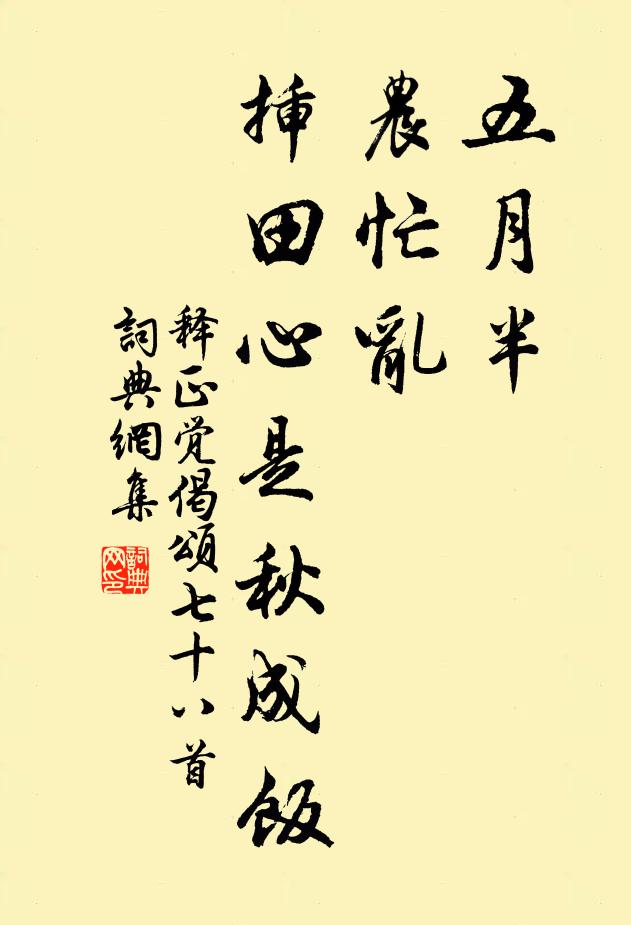 五月半
農忙亂
揷田心是秋成飯
释正觉偈頌七十八首
詞典網集
詞典网印